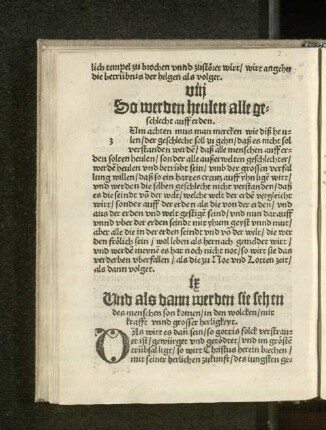 lich tempel zu brochen vnnd zustöret wirt/ wirt angehn
die betrübnis der helgen als volget.
viij
So werden heulen alle ge-
schlecht auff erden.
Zum achten mus man mercken wie diß heu-
3 len/ der geschlecht soll zu gehn/ daß es nicht sol
verstanden werdē/ daß alle menschen auff er-
den solten heulen/ sonder alle außerwelten geschlechter/
werdē heulen vnd betrübt sein/ vmb der grossen verfal
lung willen/ daß so ein hartes creutz auff yhn ligē wirt/
vnd werden die selben geschlecht nicht verstanden/ daß
es die seindt vō der welt/ welche welt der erdē vergleicht
wirt/ sonder auff der erden als die von der erden/ vnd
aus der erden vnd welt gestigē seind/ vnd nun dar auff
vnnd vber der erden seindt mit yhrem geyst vnnd mut/
aber alle die in der erden seindt vnd vō der welt/ die wer
den frölich sein/ wol leben als hernach gemeldet wirt/
vnd werdē meynē es hat noch nicht not/ so wirt sie das
verderben vberfallen/ als die zu Noe vnd Lotten zeit/
als dann volget.
ix
Vnd als dann werden sie sehen
des menschen son komen/ in den wolcken/ mit
krafft vnnd grosser herligkeyt.
Als wirt es dañ sein/ so gottis folck verstrau-
et ist/ gewürget vnd getödtet/ vnd im gröstē
trübsal ligt/ so wirt Christus herein brechen/
mit seiner herlichen zukunfft/ des iungsten ge-